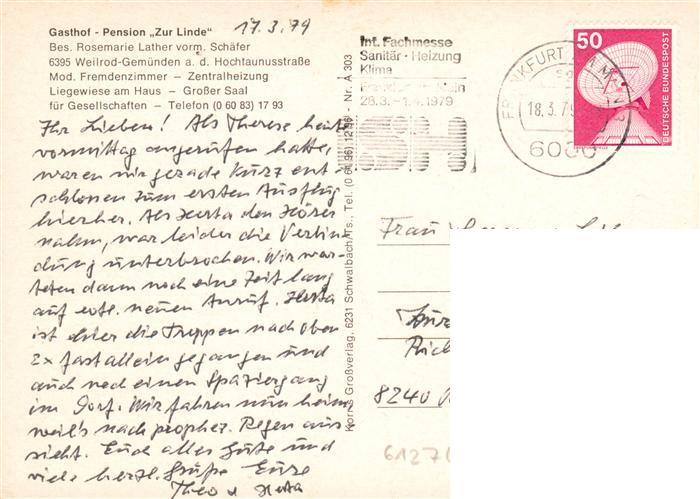 Gasthof - Pension „Zur Linde"
17.3.79
Bes. Rosemarie Lather vorm. Schäfer
6395 Weilrod-Gemünden a. d. Hochtaunusstraße
Mod. Fremdenzimmer – Zentralheizung
Liegewiese am Haus – Großer Saal
für Gesellschaften – Telefon (0 60 83) 17 93
Ihr Lieben! Als Therese heut
vormittag angerufen hatte,
waren wir gerade kurz ent-
schlossen zum ersten Ausflug
hierher. Als Herta den Hörer
nahm, war leider die Verbin-
dung unterbrochen. Wir war-
teten dann noch eine Zeit lang
auf evtl. neuen Anruf. Herta
ist hier die Treppen nach oben
2x fast allein gegangen und
auch noch einen Spaziergang
im Dorf. Wir fahren nun heim
weil's nach prophez. Regen aus
sieht. Euch alles Gute und
viele herzl. Grüße Eure
Theo u Herta
Korr's Großverlag, 6231 Schwalbach/Ts., Tel. (0 61 96) 12 96 - Nr. A 303
Int. Fachmesse
Sanitär · Heizung
Klima
Frankfurt am Main
28.3. – 1.4.1979
SHK
FRANKFURT AM MAIN
18.3.79
6000
50
DEUTSCHE BUNDESPOST
Frau
8240
6127